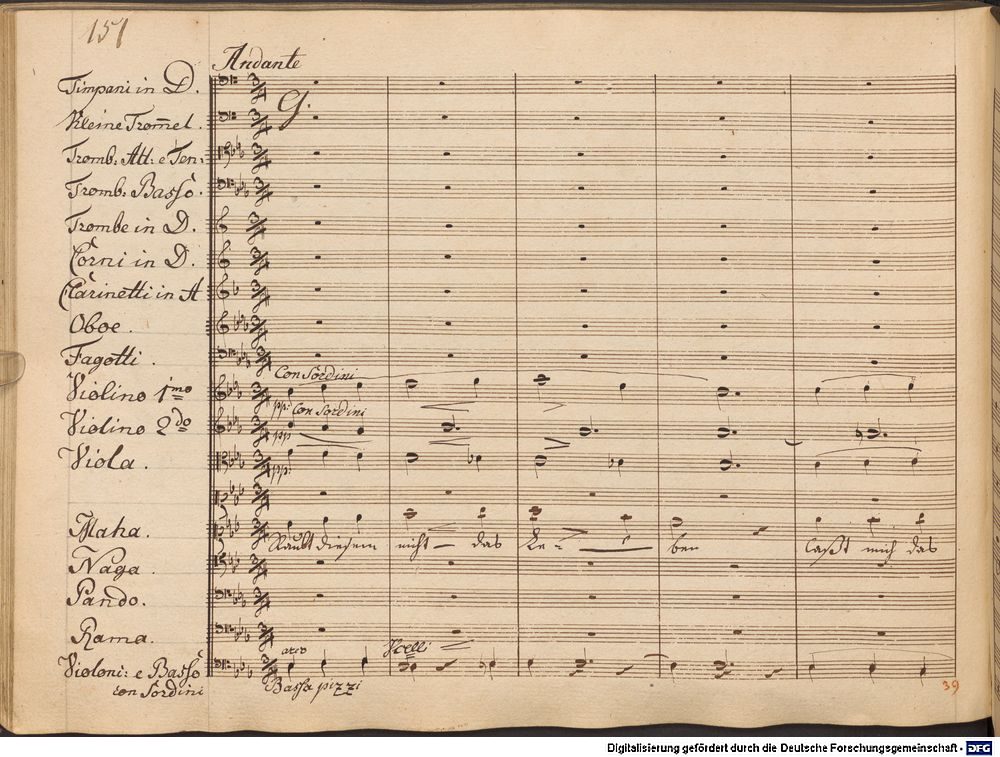 151
Andante
Timpani in D.
Kleine Trom̄el.
Tromb: Alt: e Ten:
Tromb: Basso.
Trombe in D.
Corni in D.
Clarinetti in A
Oboe.
Fagotti.
Con Sordini
Violino 1mo
pp: Con Sordini
Violino 2do
pp
Viola.
pp:
Maha.
Raubt diesem nicht das Le - ben laßt mich das
Naga.
Pando.
Rama.
arco Vcelli
Violoni: e Basso
con Sordini
Bassa pizzi
39
Digitalisierung gefördert durch die Deutsche Forschungsgemeinschaft - DFG